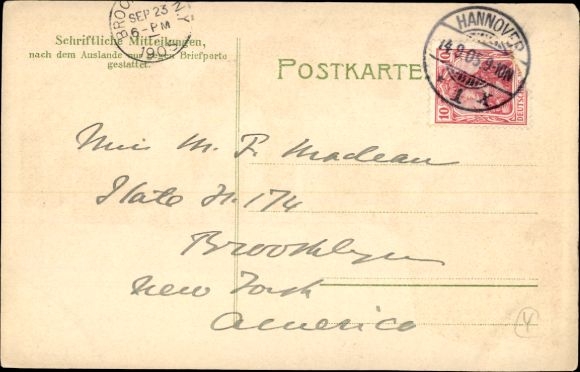 BROO N.Y.
SEP 23
6-PM
1905
Schriftliche Mitteilungen,
nach dem Auslande nur gegen Briefporto
gestattet.
POSTKARTE
HANNOVER
14.9.05.9-10N
1 x
10
DEUTSCHES
Miss M. F. Maclean
State St. 174
Brooklyn
New York
America
Y